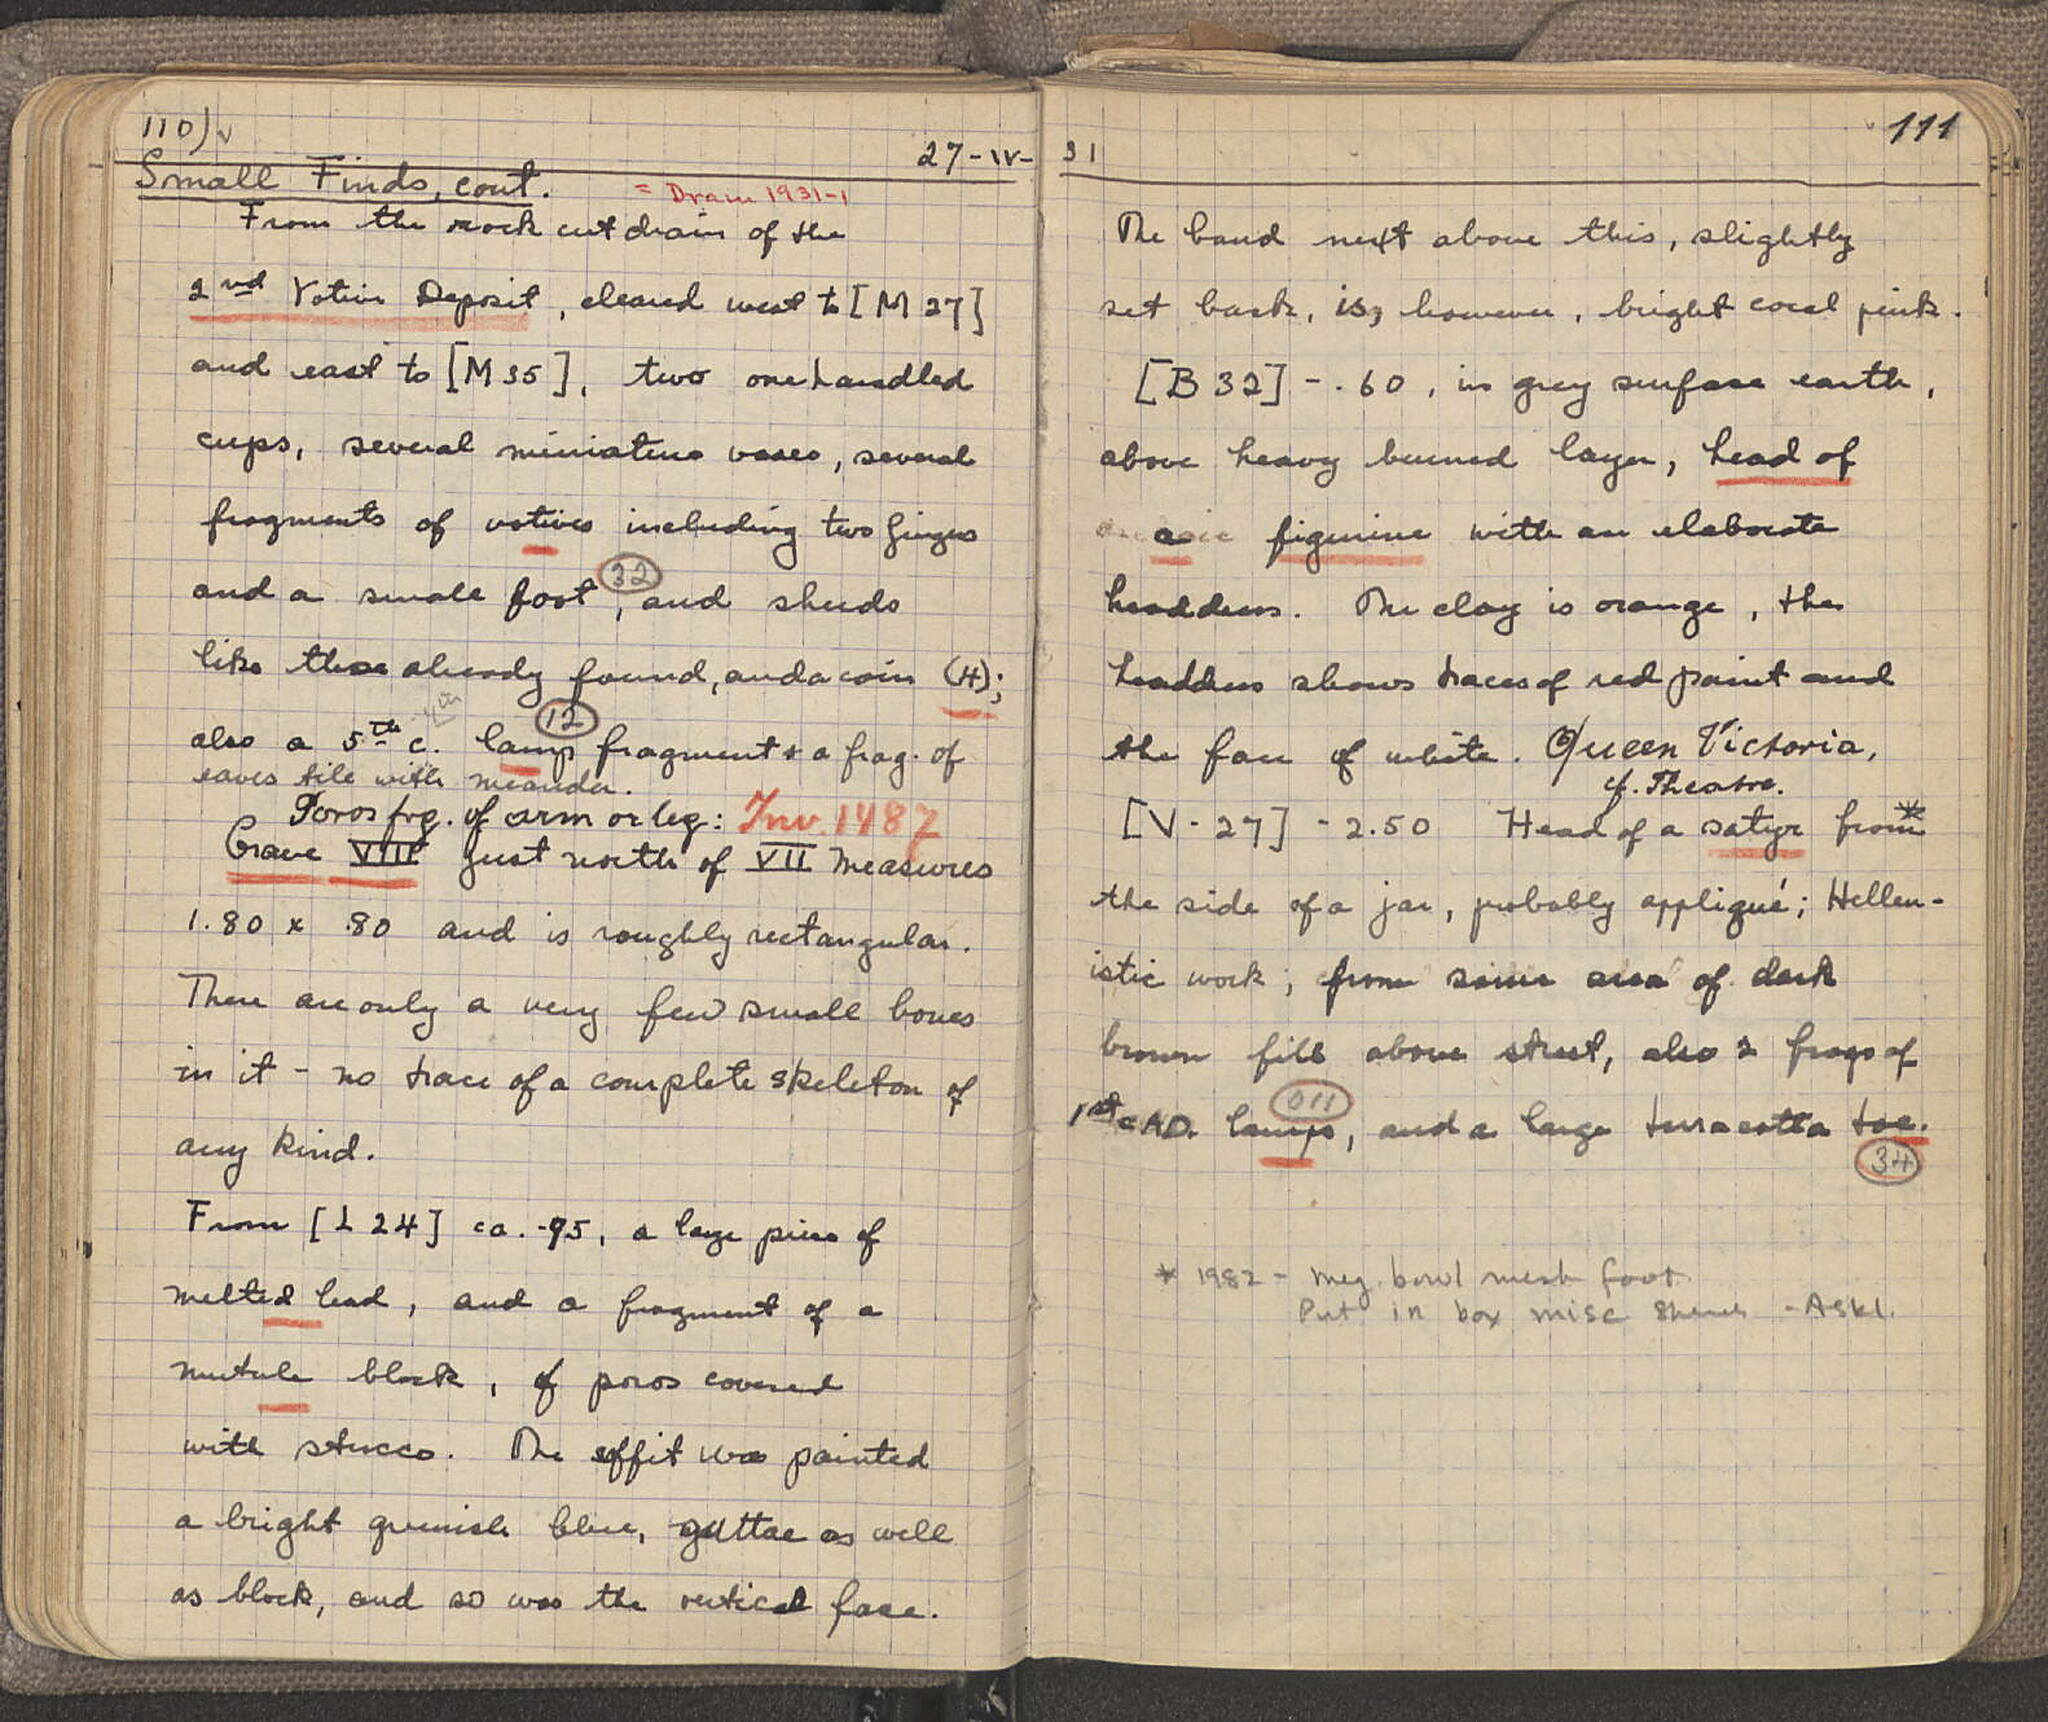 110) v
27-IV-
Small Finds, cont.
= Drain 1931-1
From the rock cut drain of the
2nd Votive Deposit, cleared west to [M 27]
and east to [M 35], two onehandled
cups, several miniature vases, several
fragments of votives including two fingers
32
and a small foot, and sherds
like those already found, and a coin (4);
4th
12
also a 5th c. lamp fragment & a frag. of
eaves tile with meander.
Poros frg. of arm or leg: Inv. 1487
Grave VIII just north of VII measures
1.80 x .80 and is roughly rectangular.
There are only a very few small bones
in it - no trace of a complete skeleton of
any kind.
From [L 24] ca. -.95, a large piece of
melted lead, and a fragment of a
mutule block, of poros covered
with stucco. The soffit was painted
a bright greenish blue, guttae as well
as block, and so was the vertical face.
31
111
The band next above this, slightly
set back, is, however, bright coral pink.
[B 32] - .60, in grey surface earth,
above heavy burned layer, head of
a figurine with an elaborate
headdress. The clay is orange, the
headdress shows traces of red paint and
the face of white. Queen Victoria,
cf. Theatre.
[V - 27] - 2.50 Head of a satyr from*
the side of a jar, probably appliqué; Hellen-
istic work; from same area of dark
brown fill above street, also 2 frags of
011
1st c AD. lamps, and a large terracotta toe.
34
* 1982 - Meg. bowl mask foot.
Put in box misc - Askl.